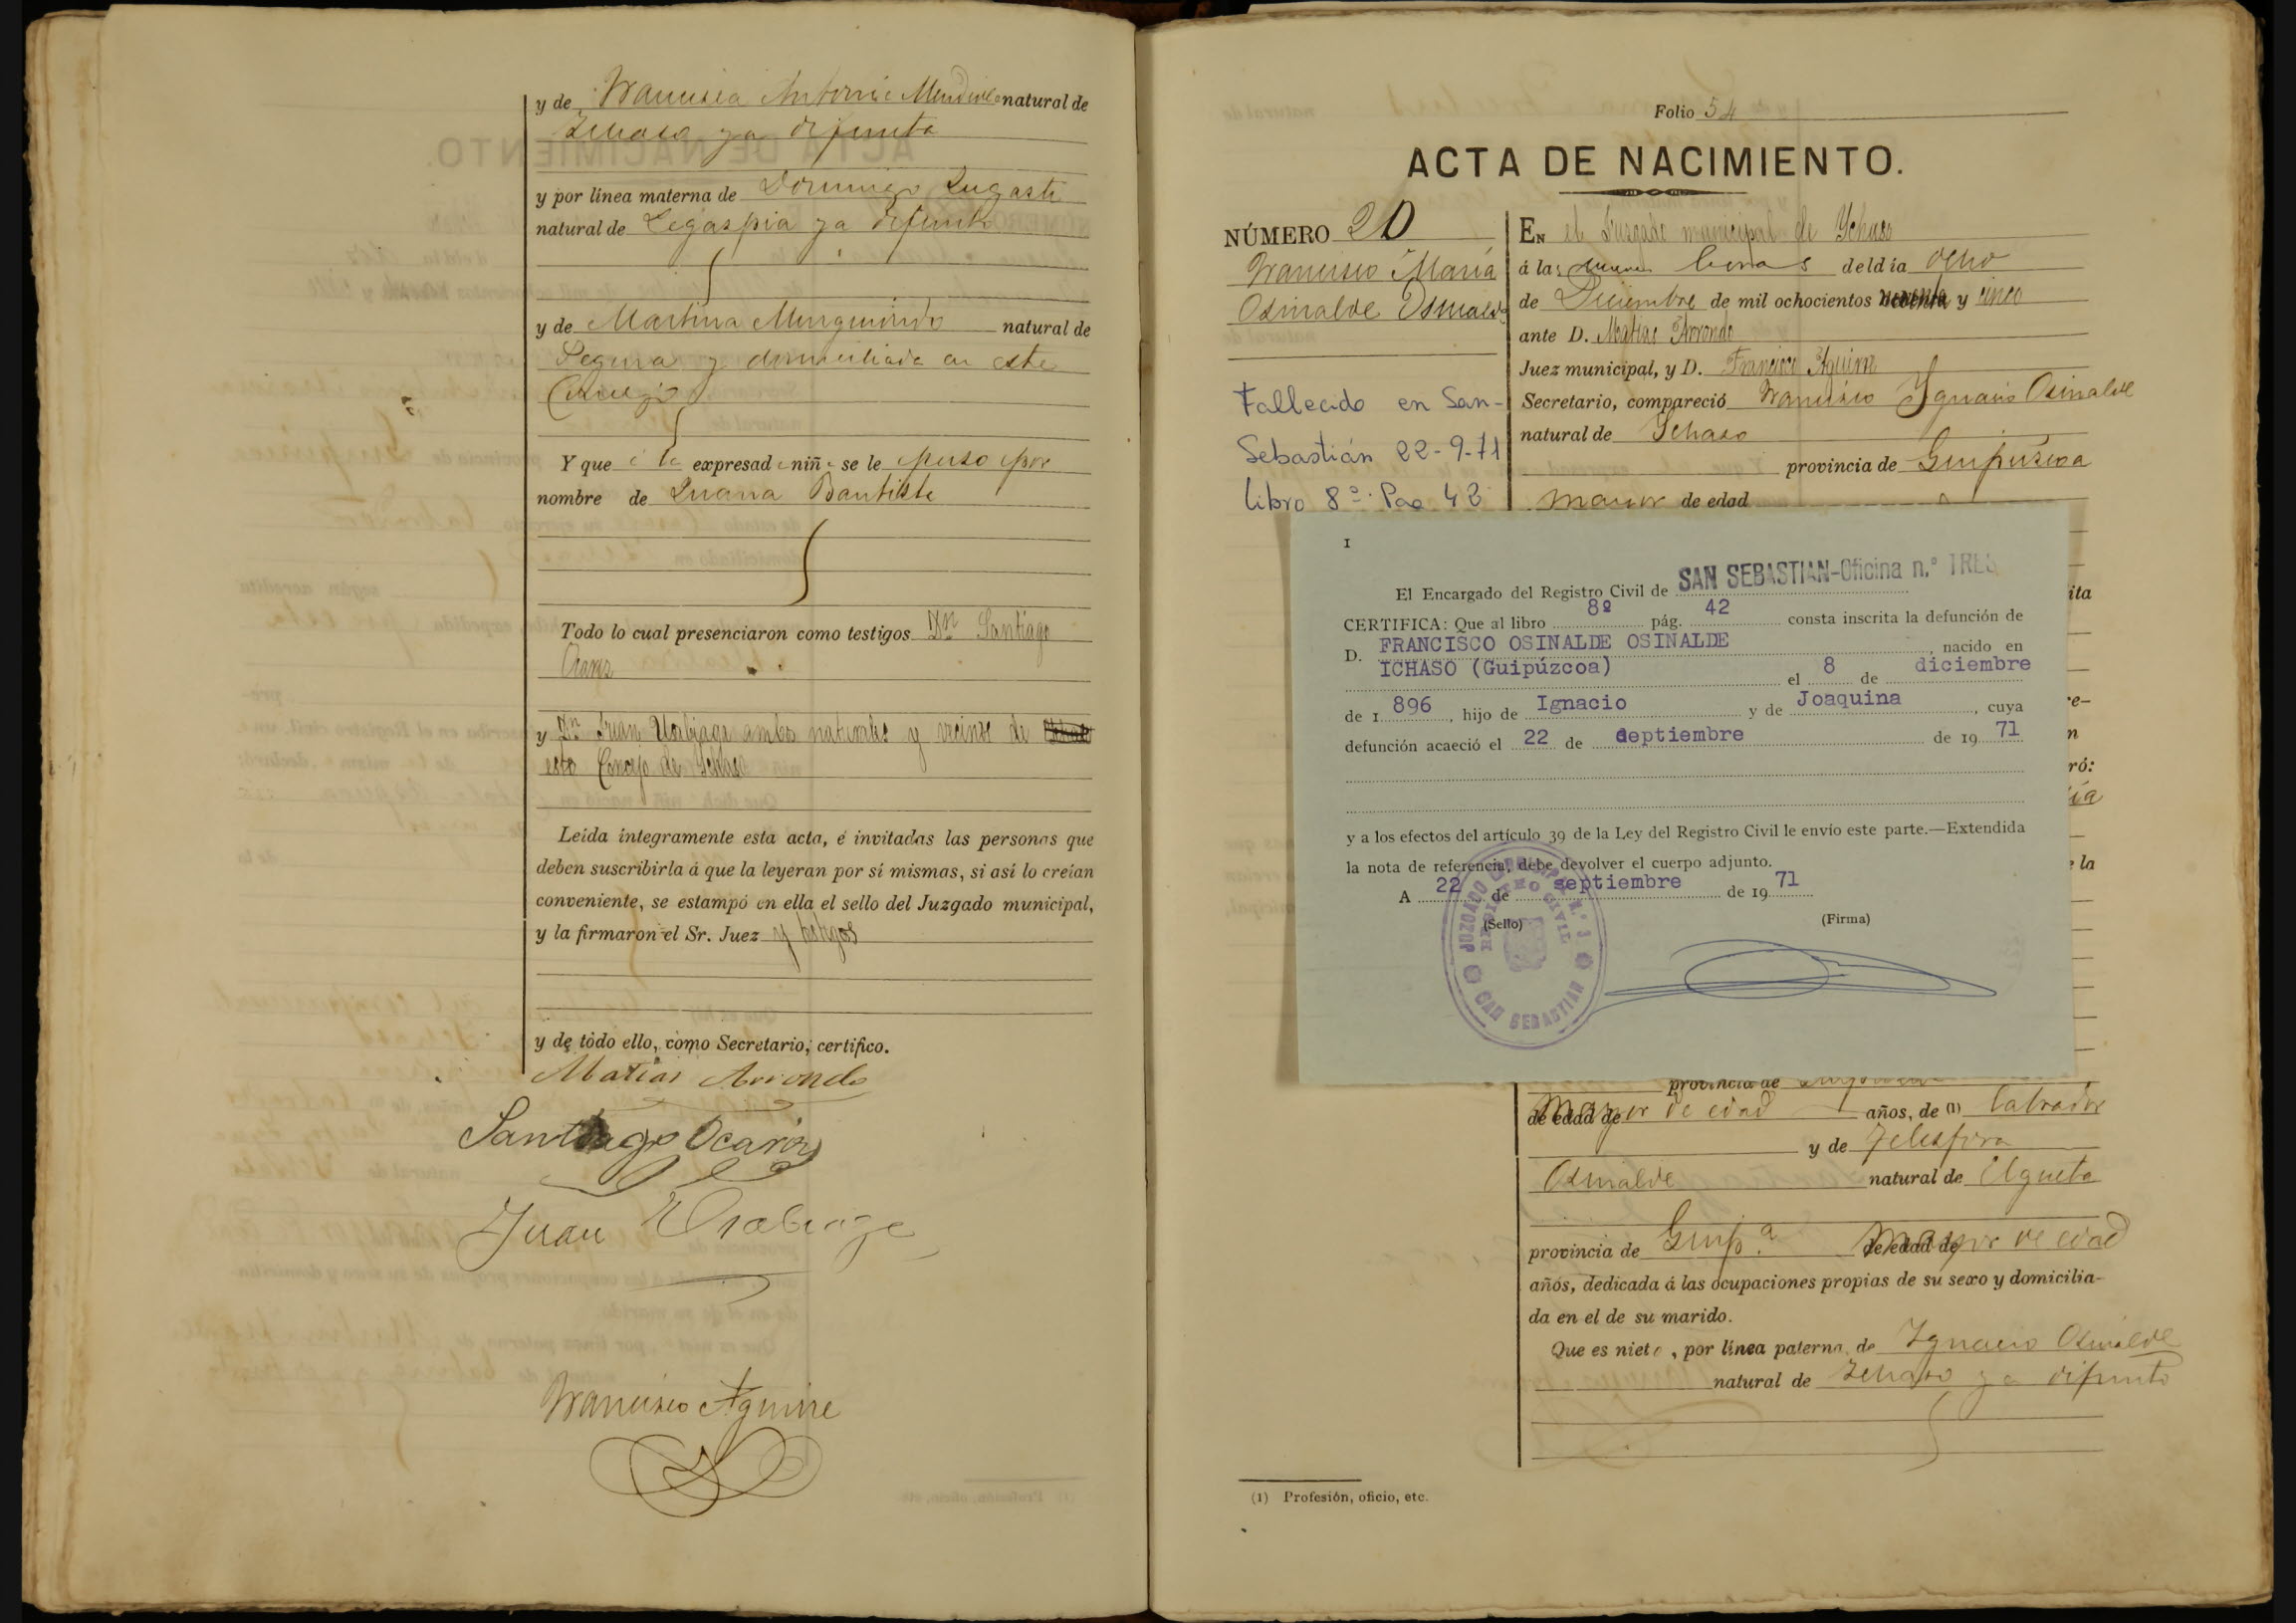 y de Francisca Antonia Mendive natural de
Ichaso ya difunta
y por línea materna de Domingo Lugaste
natural de Legaspia ya difunto
y de Martina Murguiondo natural de
Segura y domiciliada en este
Concejo
Y que á la expresada niña se le puso por
nombre de Juana Bautista
Todo lo cual presenciaron como testigos Dn Santiago
Ocariz
y Dn Juan Urabiaga ambos naturales y vecinos de
esto Concejo de Ichaso
Leída íntegramente esta acta, é invitadas las personas que
deben suscribirla á que la leyeran por sí mismas, si así lo creían
conveniente, se estampó en ella el sello del Juzgado municipal,
y la firmaron el Sr. Juez y testigos
y de todo ello, como Secretario, certifico.
Matias Arrondo
Santiago Ocariz
Juan Urabiaga
Francisco Aguirre
Folio 54
ACTA DE NACIMIENTO.
NÚMERO 20
Francisco María
Osinalde Osinalde
Fallecido en San-
Sebastián 22-9-71
libro 8º Pag 42
EN el Juzgado municipal de Ychaso
á las nueve horas del día ocho
de Diciembre de mil ochocientos noventa y cinco
ante D. Matias Arrondo
Juez municipal, y D. Francisco Aguirre
Secretario, compareció Francisco Ygnacio Osinalde
natural de Ichaso
provincia de Guipúzcoa
mayor de edad
I
El Encargado del Registro Civil de SAN SEBASTIAN-Oficina n.º TRES
CERTIFICA: Que al libro 8º pág. 42 consta inscrita la defunción de
D. FRANCISCO OSINALDE OSINALDE, nacido en
ICHASO (Guipúzcoa) el 8 de diciembre
de 1 896, hijo de Ignacio y de Joaquina, cuya
defunción acaeció el 22 de septiembre de 19 71
y a los efectos del artículo 39 de la Ley del Registro Civil le envío este parte.—Extendida
la nota de referencia, debe devolver el cuerpo adjunto.
A 22 de septiembre de 19 71
(Sello)
(Firma)
JUZGADO MUNICIPAL N.º 3
REGISTRO CIVIL
SAN SEBASTIAN
ita
re-
n
ró:
ía
e la
provincia de
de edad de mayor de edad años, de (1) labrador
y de Telesfora
Osinalde natural de Elgueta
provincia de Guip.ª de edad de mayor de edad
años, dedicada á las ocupaciones propias de su sexo y domicilia-
da en el de su marido.
Que es nieto, por línea paterna de Ignacio Osinalde
natural de Ichaso ya difunto
(1) Profesión, oficio, etc.